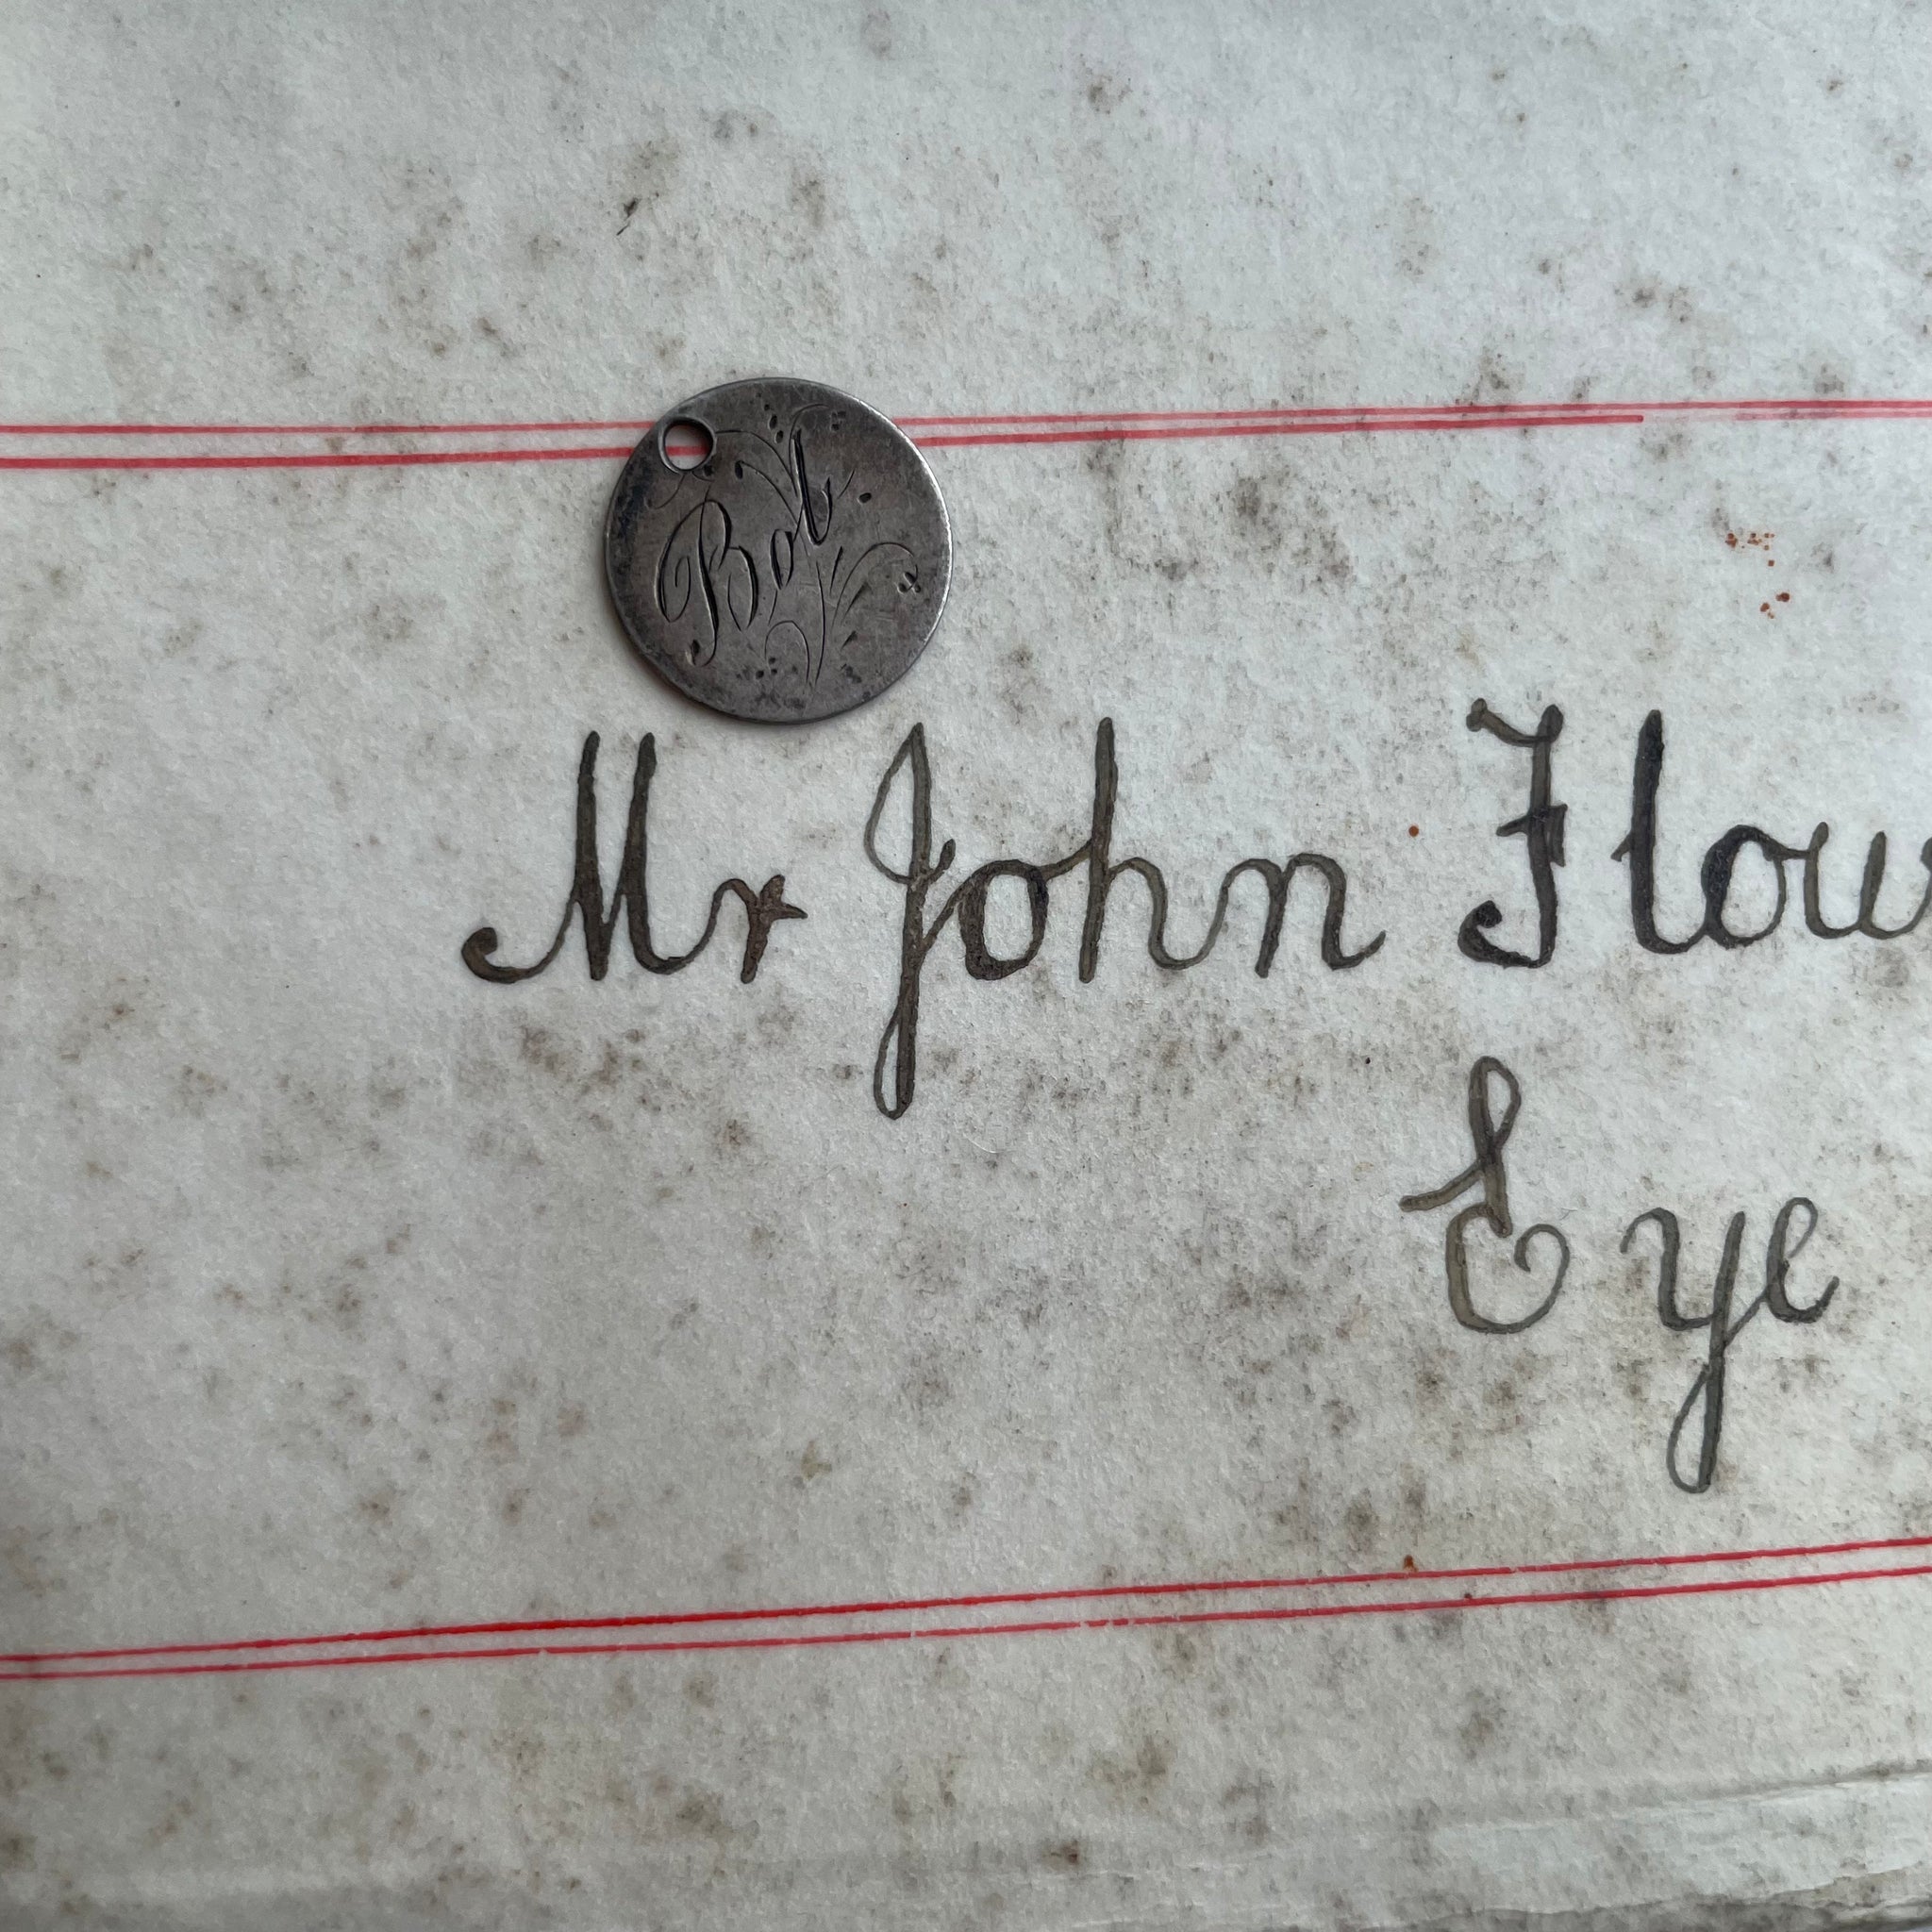 Bob
Mr John Flow
Eye